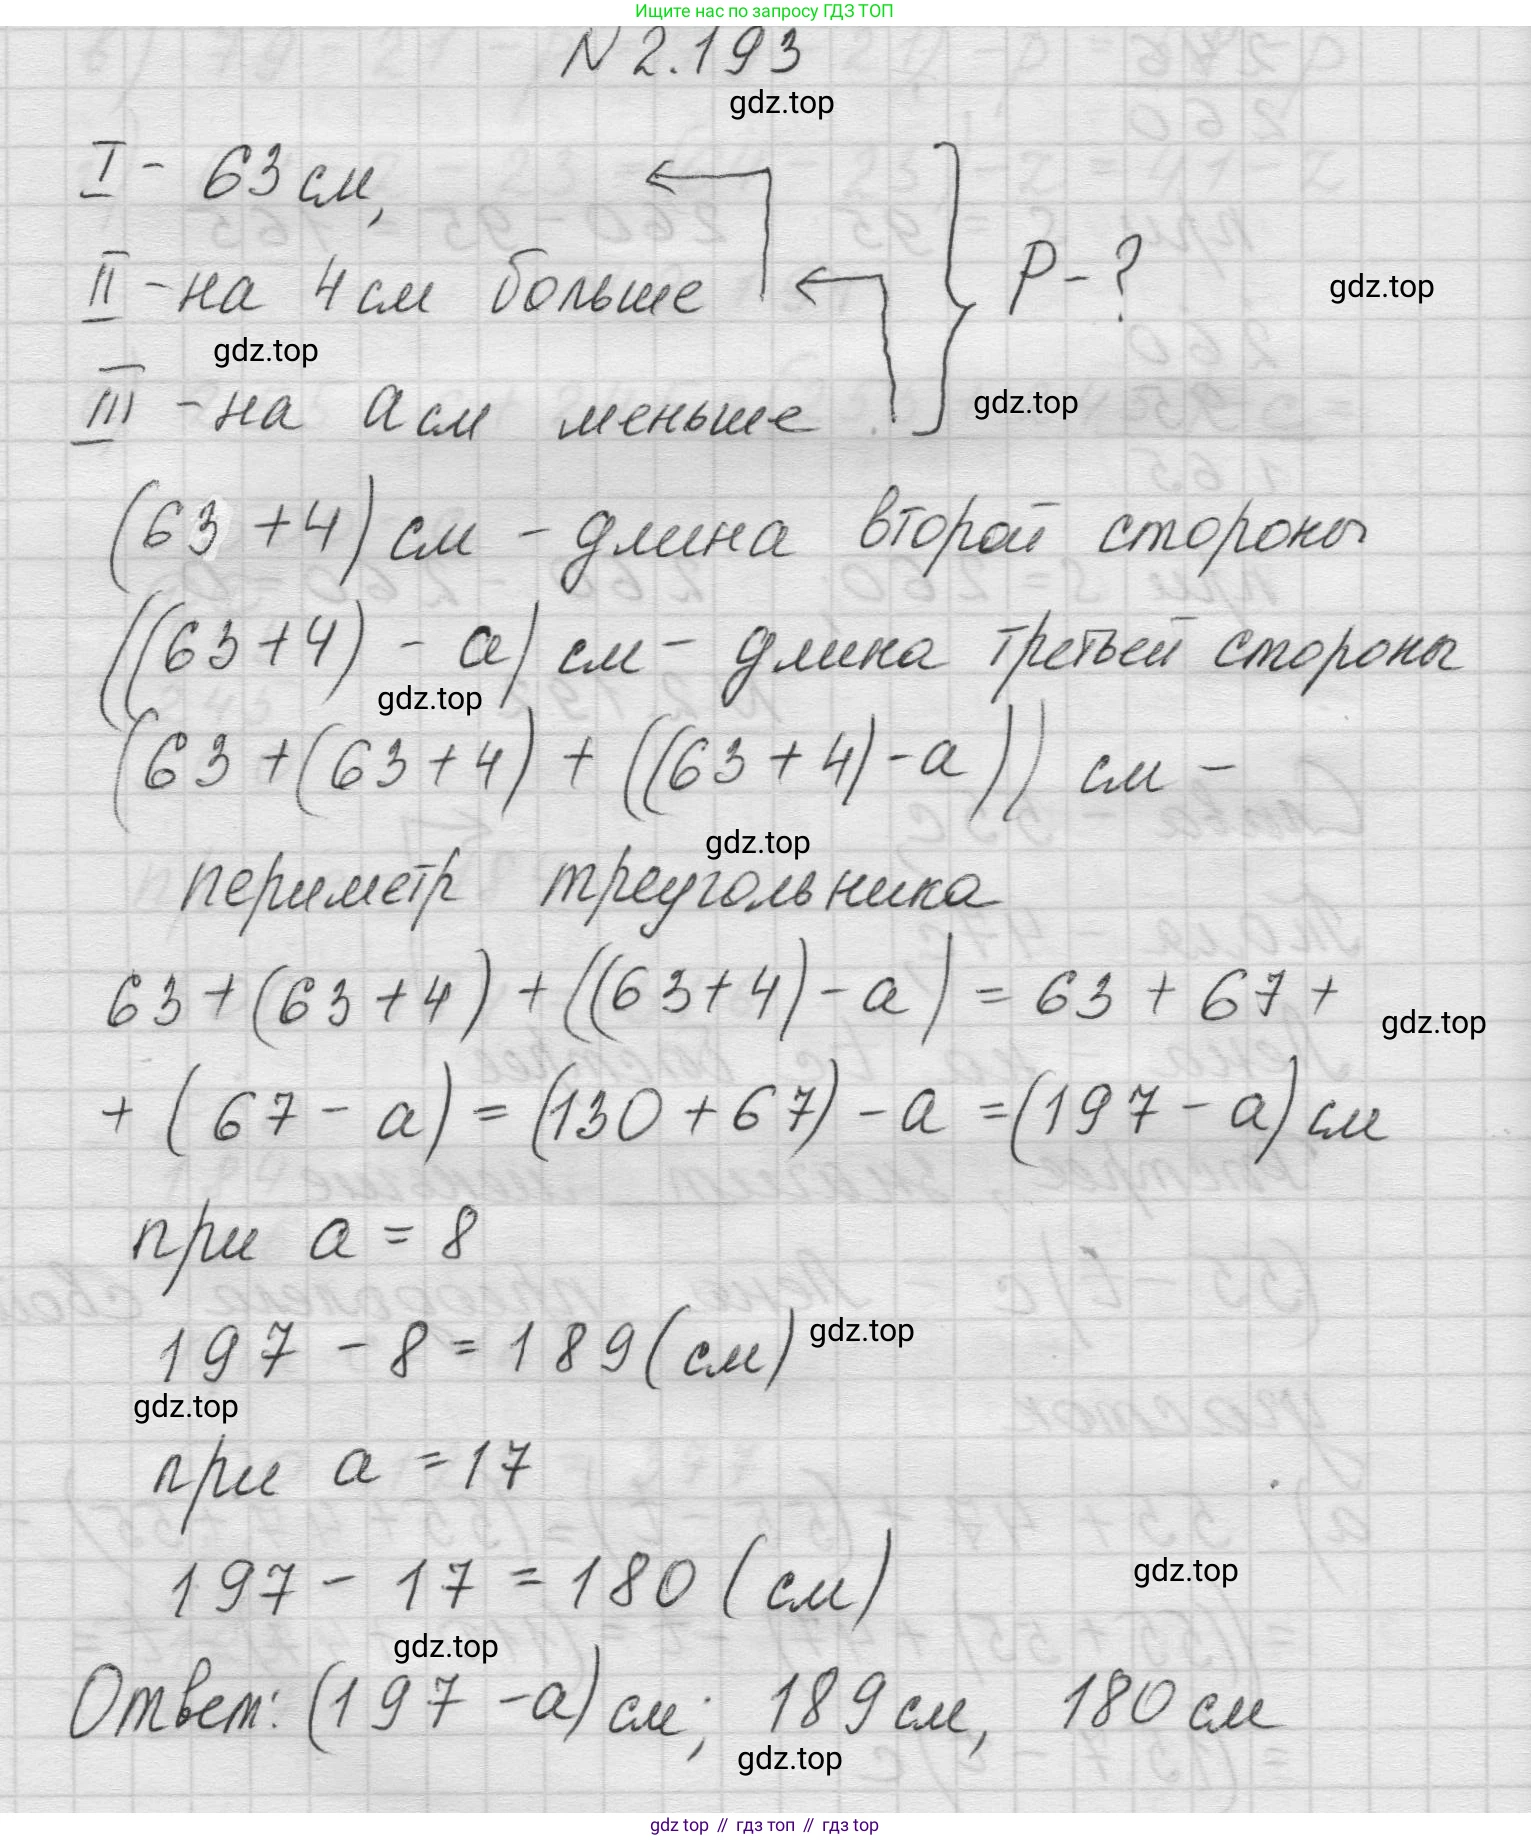 Ищите нас по запросу ГДЗ ТОП
N 2.193
gdz.top
I - 63 см,
II - на 4 см больше
P - ?
gdz.top
gdz.top
III - на a см меньше
gdz.top
(63 + 4) см - длина второй стороны
((63 + 4) - a) см - длина третьей стороны
gdz.top
(63 + (63 + 4) + ((63 + 4) - a)) см -
gdz.top
периметр треугольника
63 + (63 + 4) + ((63 + 4) - a) = 63 + 67 +
gdz.top
+ (67 - a) = (130 + 67) - a = (197 - a) см
при a = 8
197 - 8 = 189 (см)
gdz.top
gdz.top
при a = 17
197 - 17 = 180 (см)
gdz.top
gdz.top
Ответ: (197 - a) см; 189 см, 180 см
gdz.top
gdz top // гдз топ // гдз top